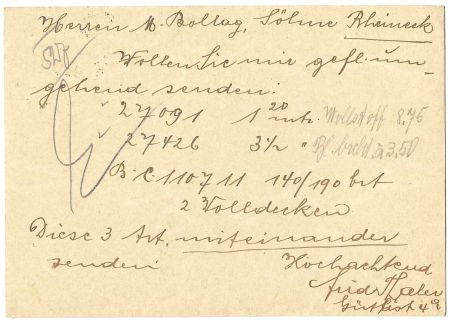 Herren M. Bollag, Söhne Rheineck
Wollen Sie mir gefl. um-
gehend senden:
27091 1 20 mtr. Wollstoff 8.75
27426 3½ " br a 3.50
B.C. 110711 140/190 brt
2 Volldecken
Diese 3 Art. miteinander
senden
Hochachtend
Frid.